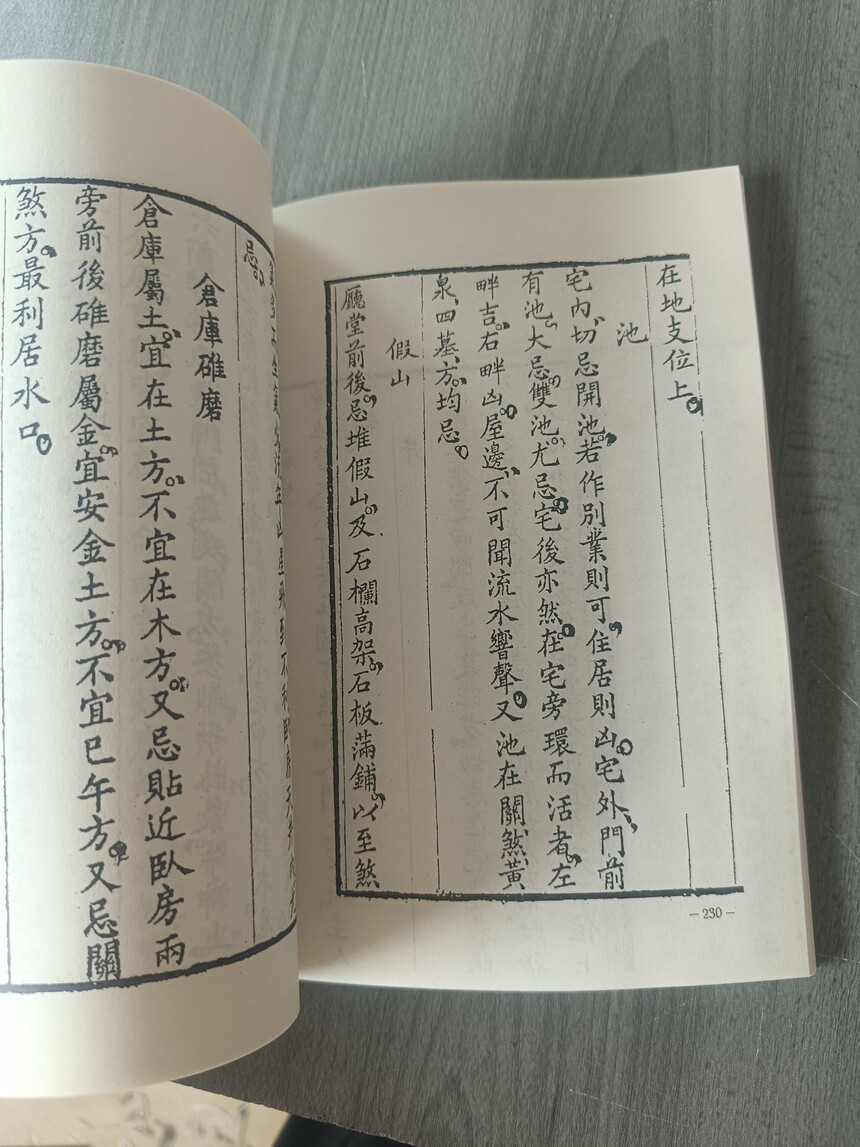 在地支位上。
池
宅内、切忌開池。若作別業則可、住居則凶。宅外、門前
有池、大忌雙池、尤忌。宅後亦然。在宅旁環而活者、左
畔吉。右畔凶。屋邊、不可聞流水響聲。又池在關、煞、黃
泉、四墓、方、均忌。
假山
廳堂前後、忌堆假山、及石欄高架、石板滿鋪、以至煞
忌。
倉庫碓磨
倉庫屬土、宜在土方、不宜在木方、又忌貼近臥房兩
旁前後碓磨屬金、宜安金土方、不宜巳午方、又忌關
煞方、最利居水口。
— 230 —